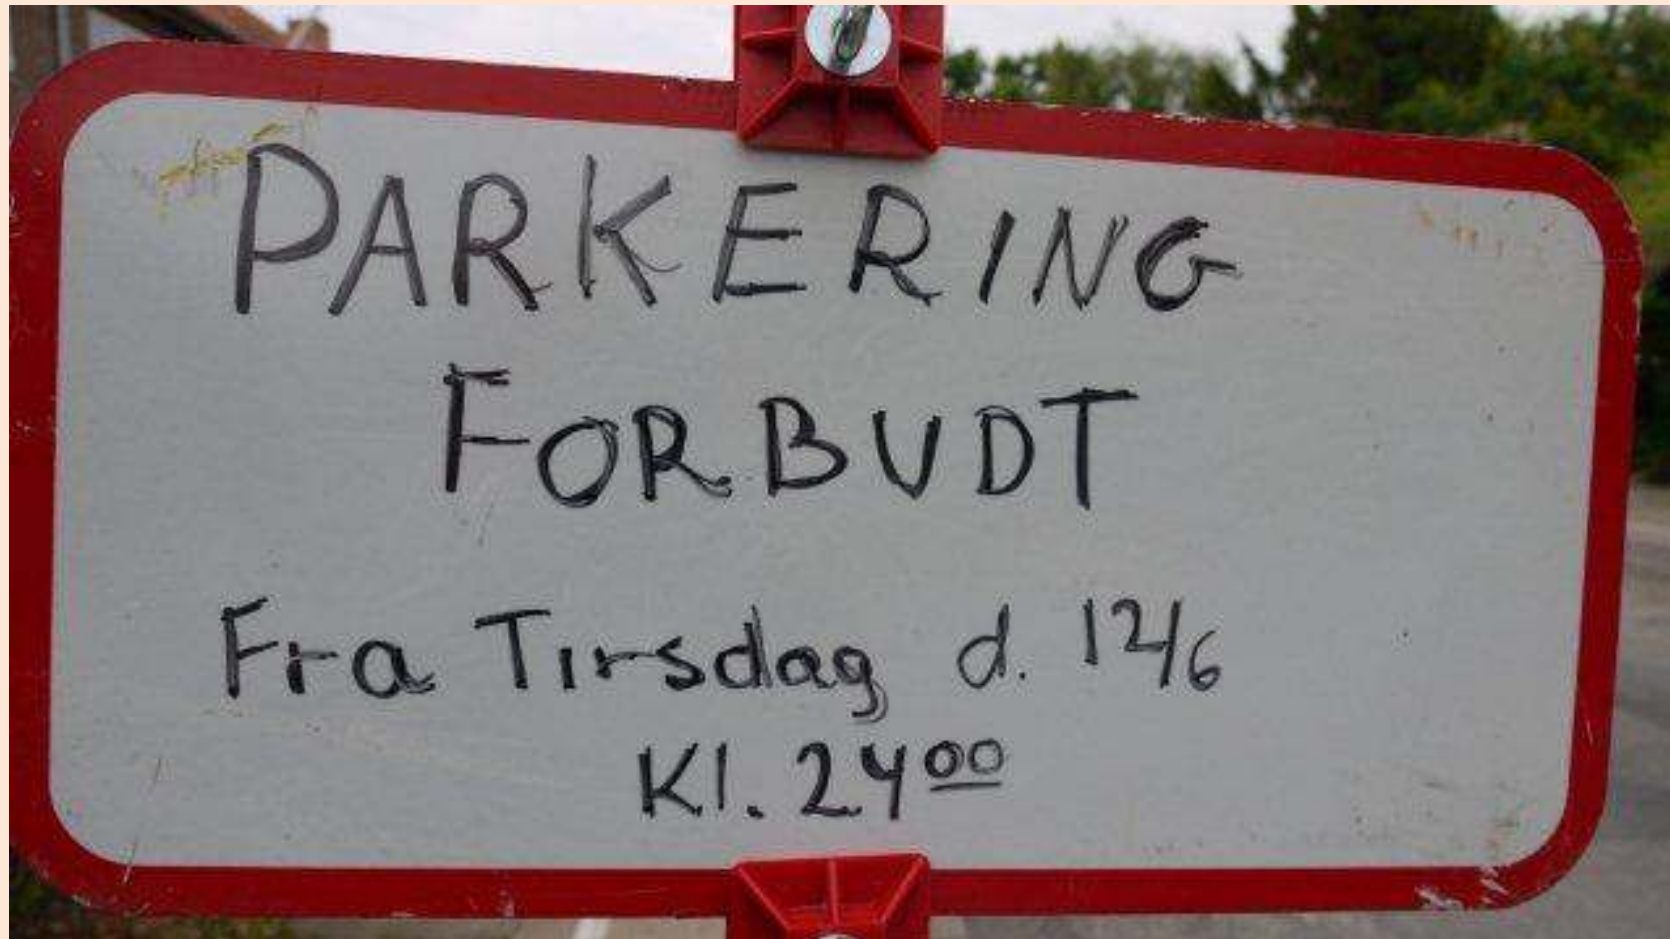 PARKERING
FORBUDT
Fra Tirsdag d. 12/6
Kl. 2400